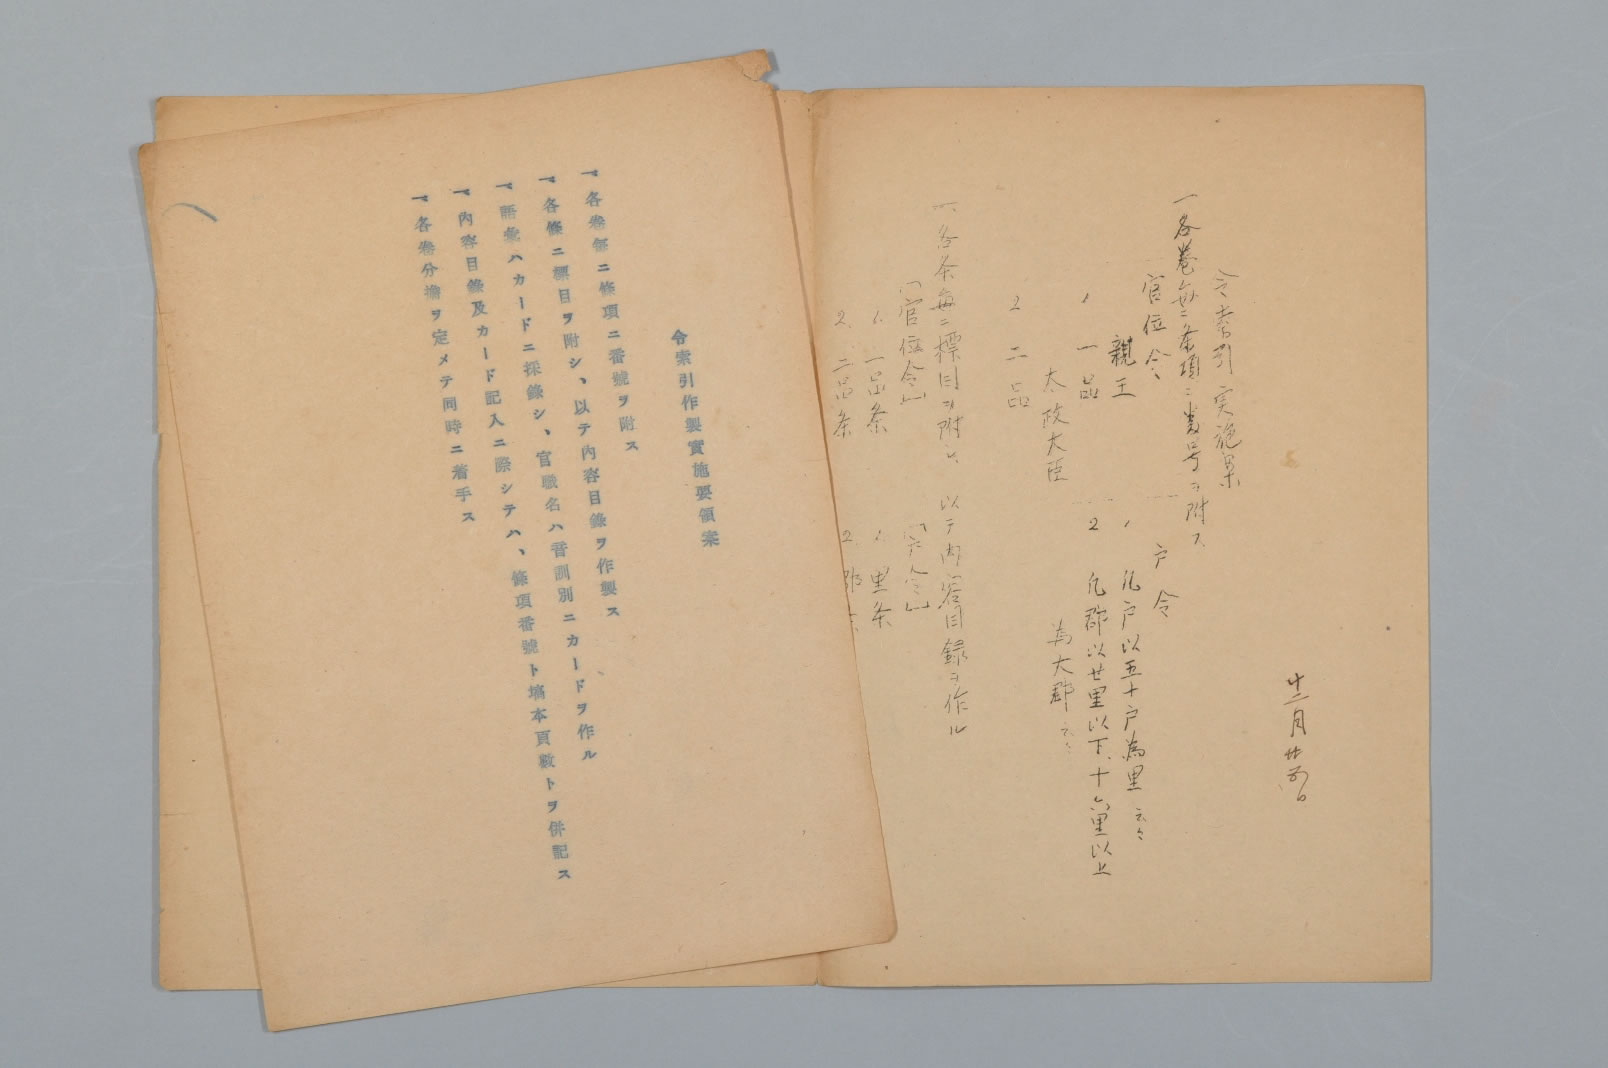 十二月廿五日
令索引実施案
一各巻毎ニ条項ニ番号ヲ附ス
官位令
親王
1 一品
太政大臣
2 二品
戸令
1 凡戸以五十戸為里 云々
2 凡郡以廿里以下、十六里以上
為大郡 云々
一、各条毎ニ標目ヲ附シ、以テ内容目録ヲ作ル
「官位令」
1. 一品条
2. 二品条
「戸令」
1. 里条
2.
令索引作製實施要領案
一、各卷每ニ條項ニ番號ヲ附ス
一、各條ニ標目ヲ附シ、以テ內容目錄ヲ作製ス
一、語彙ハカードニ採錄シ、官職名ハ音訓別ニカードヲ作ル
一、內容目錄及カード記入ニ際シテハ、條項番號ト塙本頁數トヲ併記ス
一、各卷分擔ヲ定メテ同時ニ着手ス